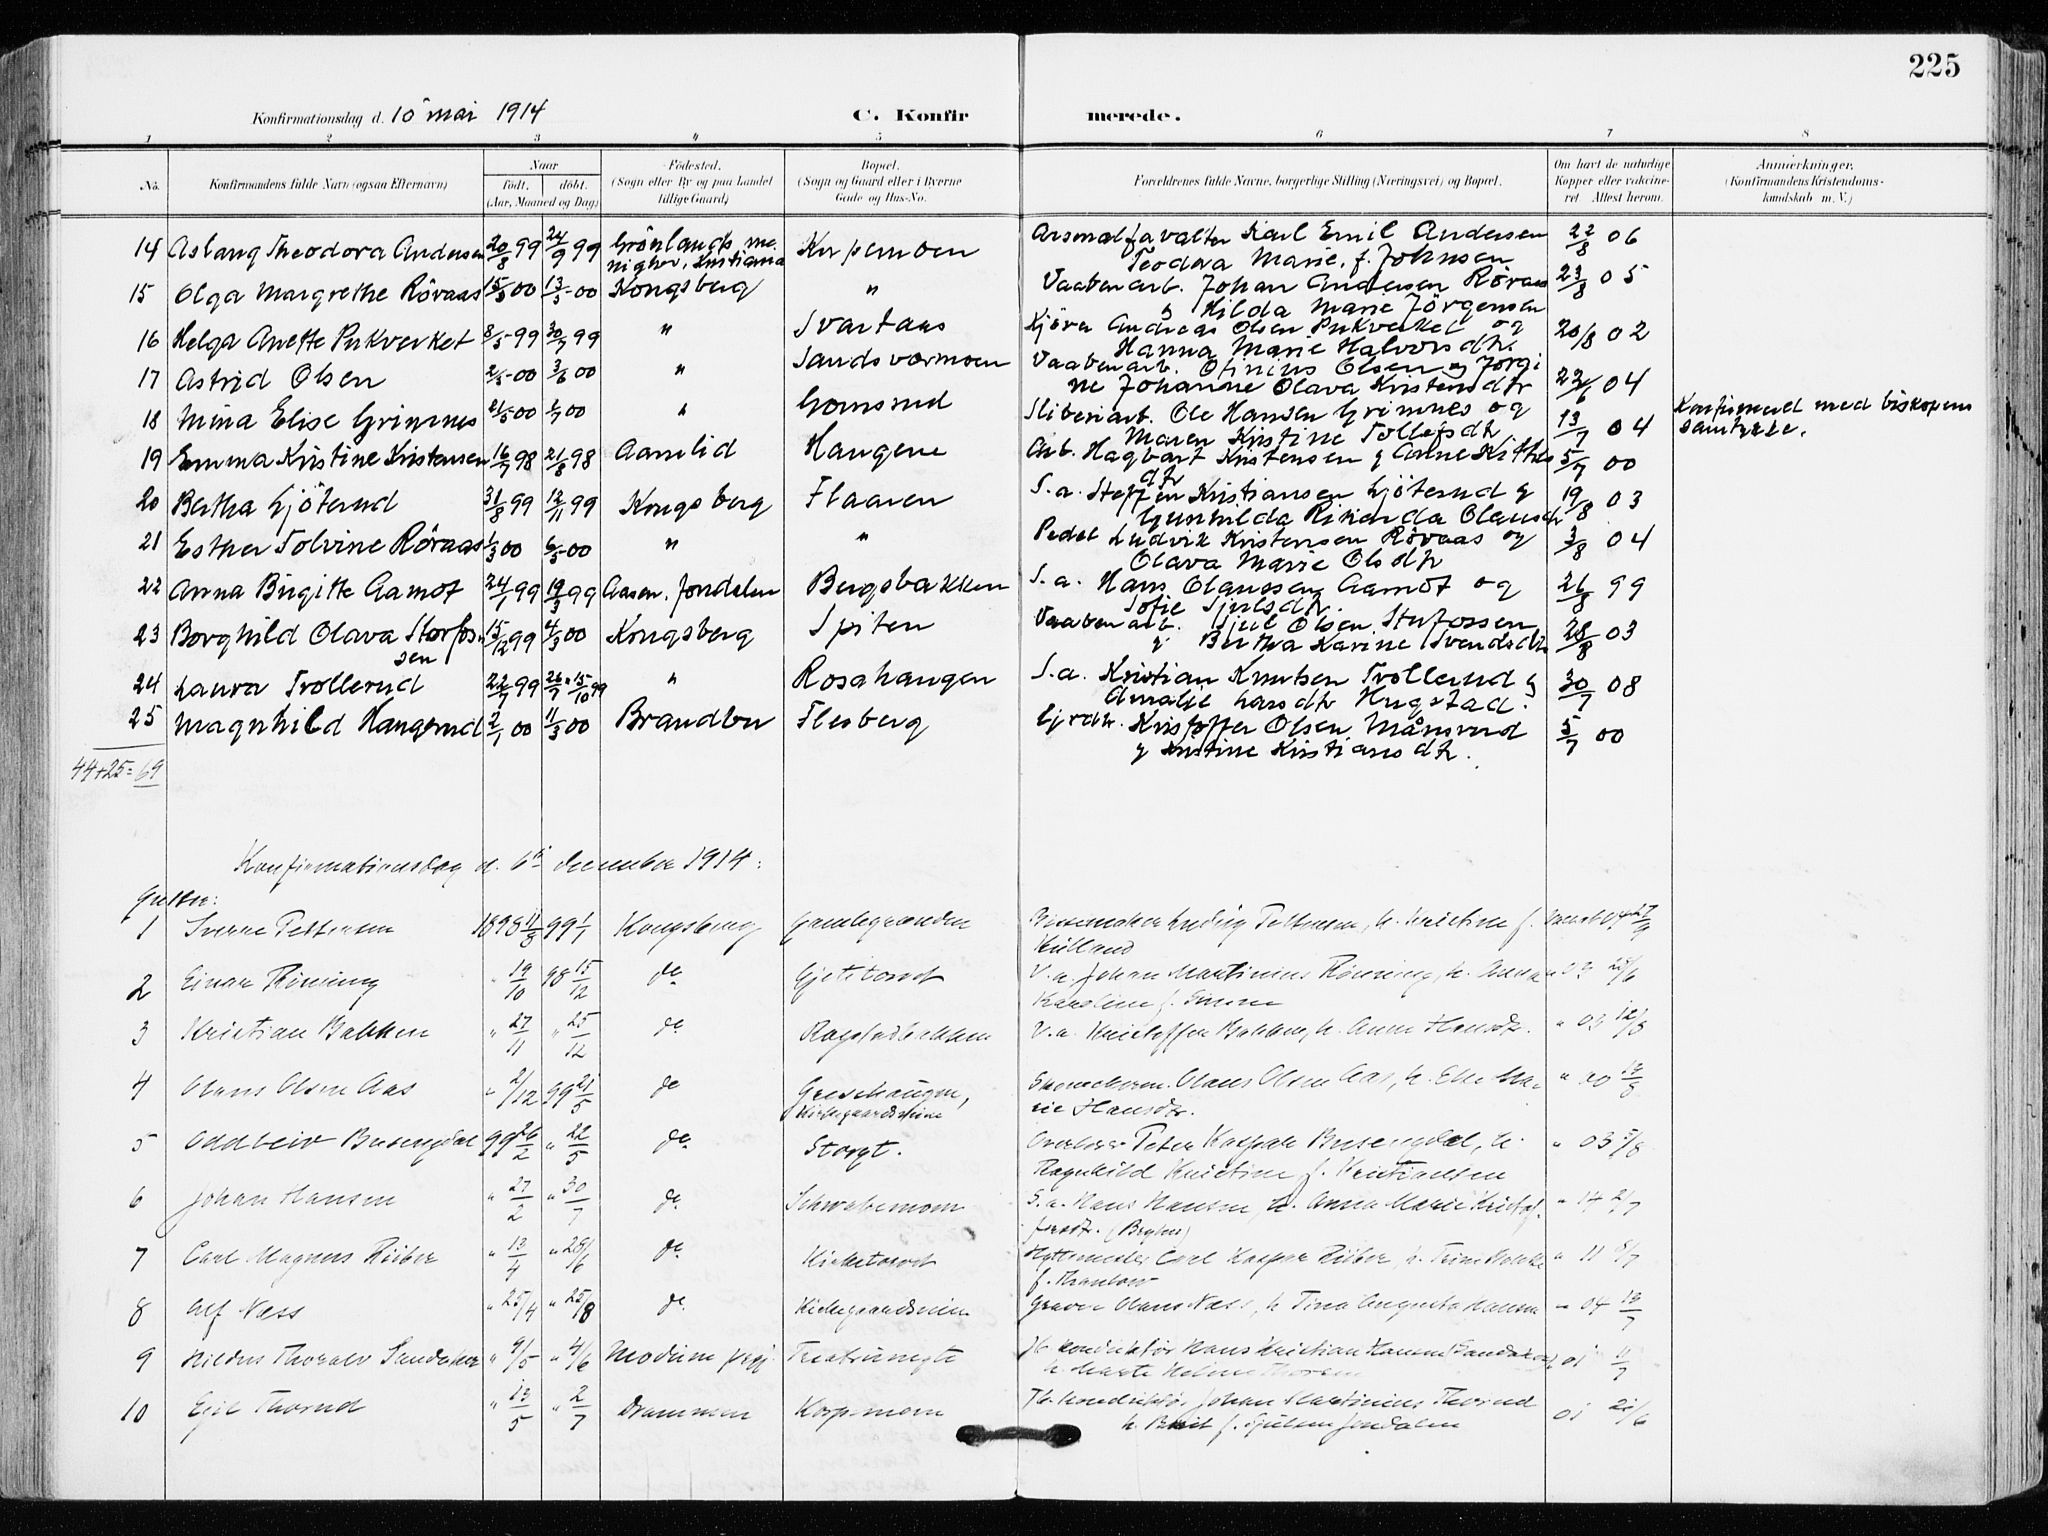 225
Konfirmationsdag d. 10 mai 1914 C. Konfirmerede.
1 2 3 4 5 6 7 8
No. Konfirmandens fulde Navn (ogsaa Efternavn) Naar født, døbt. (Aar, Maaned og Dag) Fødested. (Sogn eller By og paa Landet tillige Gaard) Bopæl. (Sogn og Gaard eller i Byerne Gade og Hus-No. Forældrenes fulde Navne, borgerlige Stilling (Næringsvei) og Bopæl. Om havt de naturlige Kopper eller vaccineret. Attest herom. Anmærkninger. (Konfirmandens Kristendomskundskab m. V.)
14 Aslaug Theodora Andersen 20/8 99 24/9 99 Grönlands menighet, Kristiania Korpemoen Arsenalfavalter Karl Emil Andersen 22/8 06
Teodora Marie, f. Johnsen
15 Olga Margrethe Röraas 15/3 00 13/5-00 Kongsberg " Vaabenarb. Johan Andersen Röraas 23/8 05
g Hilda Marie Jörgensen
16 Helga Anette Pukverket 8/5-99 30/7 99 " Svartaas Kjörer Andreas Olsen Pukverket og 20/8 02
Hanna Marie Halvorsdtr.
17 Astrid Olsen 2/5-00 3/6 00 " Sandsværmoen Vaabenarb. Olsen og Jörgi
ne Johanne Olava Kristensdtr 22/6 04
18 Mina Elise Grimnes 00 00 " Gomsrud Sliberiarb. Ole Hansen Grimnes og 13/7 04 Konfirmerd med biskopens
Maren Kristine Tollefsdtr samtykke.
19 Emma Kristine Kristensen 16/7 98 21/8 98 Aamlid Haugene Arb. Hagbart Kristensen g 5/7 00
dtr
20 Bertha Gjöterud 31/8 99 12/11 99 Kongsberg Flaaren S.a. Steffen Kristiansen Gjöterud g 19/8 03
Gunhilda Rikarda Olausdtr
21 Esther Tolvine Röraas 1/3 00 6/5-00 " " Pedel Ludvik Kristensen Röraas og 3/8 04
Olava Marie Olsdtr
22 Anna Birgitte Aamot 24/1 99 19/3 99 Aasen, Jondalen Bergsbakken S.a. Hans Olaussen Aamot og 26/8 99
Sofie Tjulsdtr.
23 Borghild Olava Storfos- 15/12 99 4/3 00 Kongsberg Spiten Vaabenarb. Olsen Storfossen
sen g Bertha Karine Svendsdtr 28/8 03
24 Laura Trollerud 22/7 99 26/7 15/10 99 " Rosahaugen S.a. Kristian Knutsen Trollerud g
Amalie Larsdtr Hugstad. 30/7 08
25 Magnhild Haugerud 2/1 00 11/3 00 Brandbu Flesberg Kristoffer Olsen Månsrud 5/7 00
g Kristine Kristiansdtr.
44+25=69
Konfirmationsdag d. 6te december 1914:
Gutter:
1 Sverre Pettersen 1898 11/8 99 1/1 Kongsberg Pettersen, h. Kristine f.
2 Einar Rönning " 19/10 98 15/12 do Gjetetorvet V.a. Johan Martinius Rönning, h. Anna 03
Karoline f.
3 Kristian Bakken " 27/11 " 25/12 do V.a. Kristoffer Bakken, h. Anne Hansdtr. " 03 12/8
4 Olaus Olsen Aas " 2/12 99 21/5 do Olaus Olsen Aas, h. Else Ma- " 00
rie Hansdtr.
5 Oddleiv Busengdal 99 26/2 " 22/5 do Storgt. Peter Kaspar Busengdal, h. " 03 5/8
Ragnhild Kristine f. Kristiansen
6 Johan Hansen " 27/2 " 30/7 do Schwabemoen S.a. Hans Hansen, h. Anna Marie Kristof- " 14 2/7
fersdtr.
7 Carl Magnus Riiber " 13/4 " 25/6 do Kirketorvet Hyttemester Carl Kaspar Riiber, h. " 11 8/7
f. Thaulow
8 Alf Næss " 25/4 " 25/8 do Kirkegaardsveien Graver Olaus Næss, h Tina Augusta Hansen " 04 13/7
9 Hildus Thoralv Sandaker " 9/5 " 4/6 Modum prgj. konduktör Hans Kristian Hansen Sandaker 01 11/7
h Marte Thorsen
10 Egil Thorud " 13/5 " 2/7 Drammen Korpemoen Johan Martinius Thorud 01 21/6
h. Berit f. Jondalen